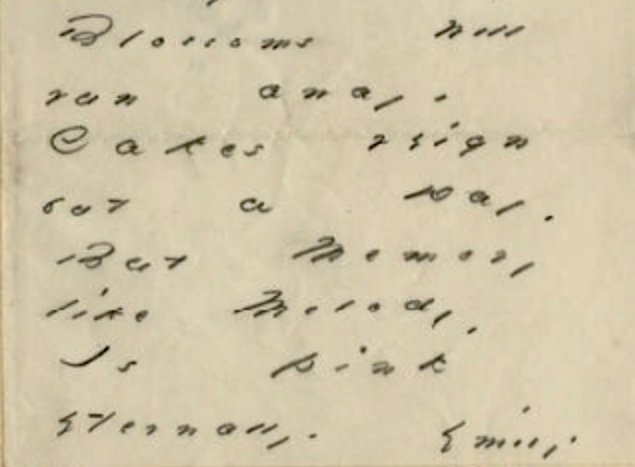 Blossoms will
run away.
Cakes reign
but a Day.
But Memory
like Melody,
Is pink
Eternally.    Emily.